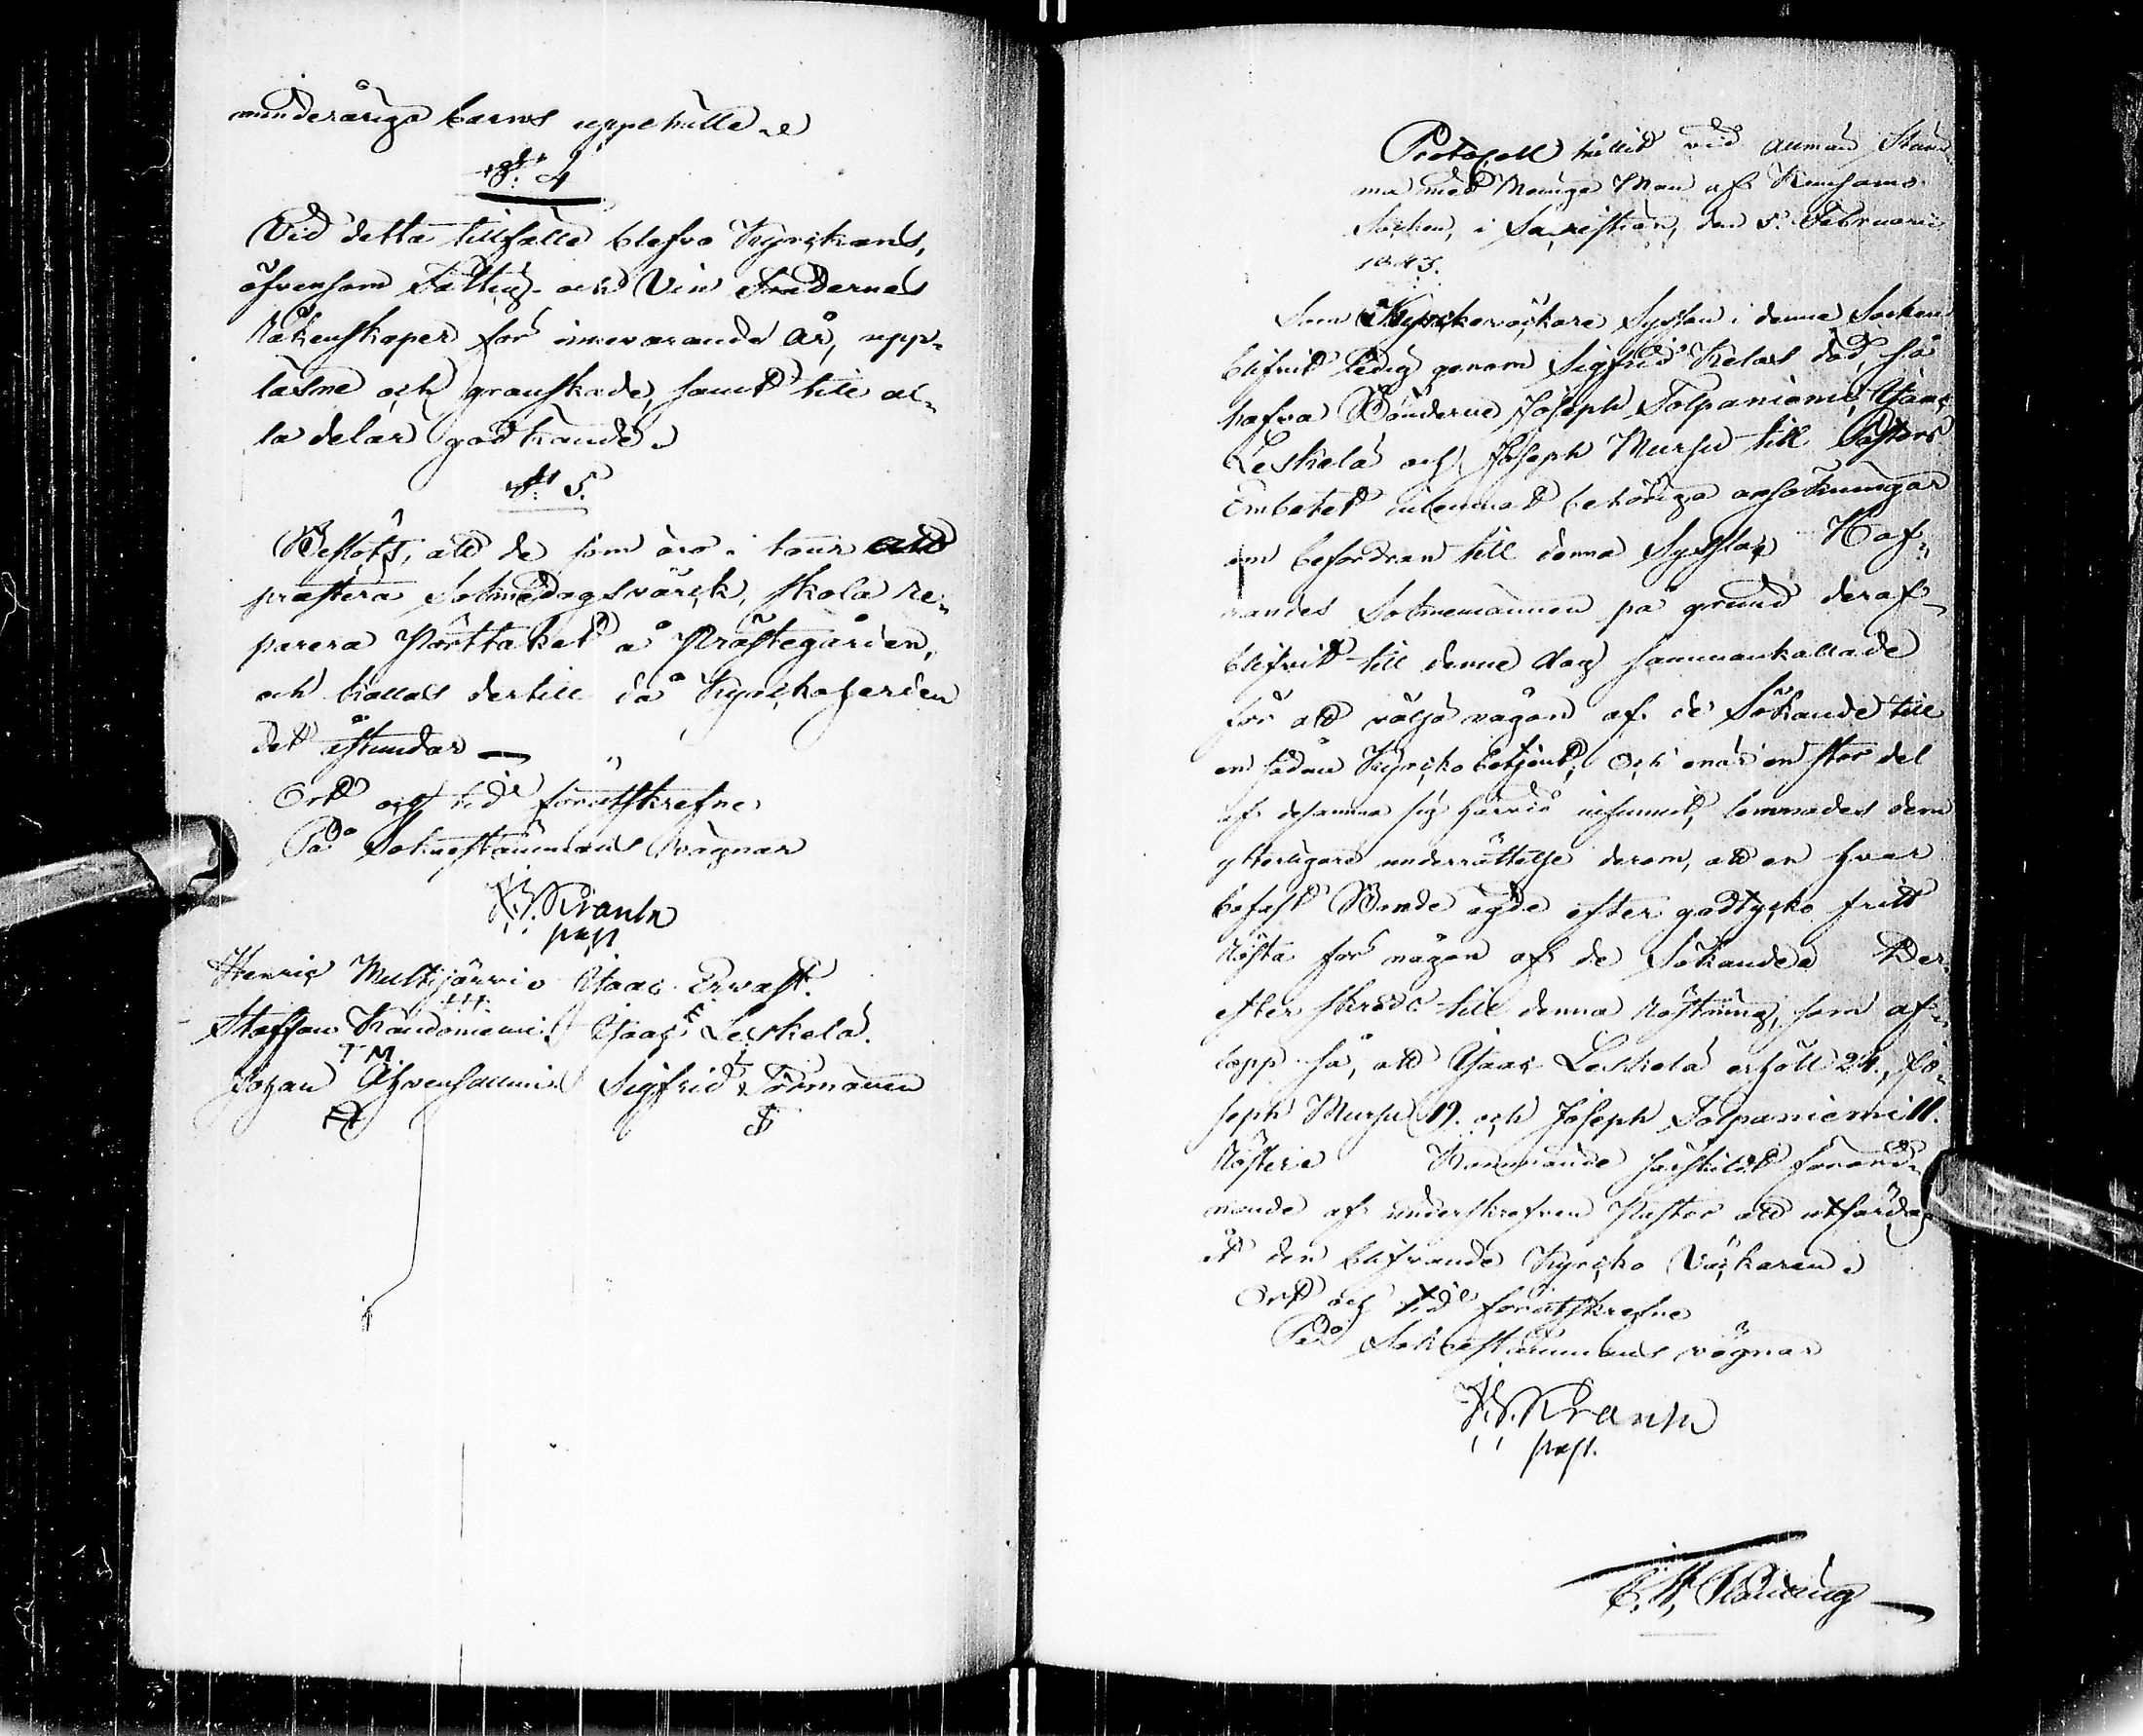 minderåriga barns uppehälle.
§. 4
Vid detta tillfälle blefvo Kyrckans,
äfvensom Fattig- och Vin Fondernas
Räkenskaper för innevarande år, upp-
läsne och granskade, samt till al-
la delar godkände.
§. 5.
Beslöts, att de som äro i tour att
præstera Soknedagsvärck, skola re-
parera Pörttaket å Prästegården,
och kallas dertill då Kyrckoherden
det åstundar
Ort och tid förutskrefne
På Soknestämmans vägnar
Krank
past
Henric Multijärvi Isaac Ervast.
Staffan Kandoniemi. Isaac Leskelä.
Johan Ahvensalmi Sigfrid Törmänen
Protocoll hållit vid allmän Stäm-
ma med Menige Man af Kuusamo
Socken, i Sacristian, den 5. Februarii
1843.
Som Kyrckoväckare Sysslan i denne Socken
blifvit ledig genom Sigfrid Kelas död, så
hafva Bönderne Joseph Tolpaniemi, Isaac
Leskelä och Joseph Mursu till Pastors
Embetet inlemnat behöriga ansökningar
om befordran till denna Syssla; Haf-
vandes Soknemännen på grund deraf
blifvit till denne dag sammankallade
för att välja någon af de Sökande till
en sådan Kyrcko betjent; Och enär en stor del
af desamma sig härvid infunnit, lemnades dem
ytterligare underrättelse derom, att en hvar
besuten Bonde ägde efter godtycko fritt
rösta för någon af de Sökande. Der-
efter skreds till denna röstning, som af-
lopp så, att Isaac Leskelä erhöll 24., Jo-
seph Mursu 19. och Joseph Tolpaniemi 11.
Röster. Kommande särskildt förord-
nande af underskrefven Pastor att utfärdas
åt den blifvande Kyrcko Väckaren.
Ort och tid förutskrefne
På Soknestämmans vägnar
Krank
past.